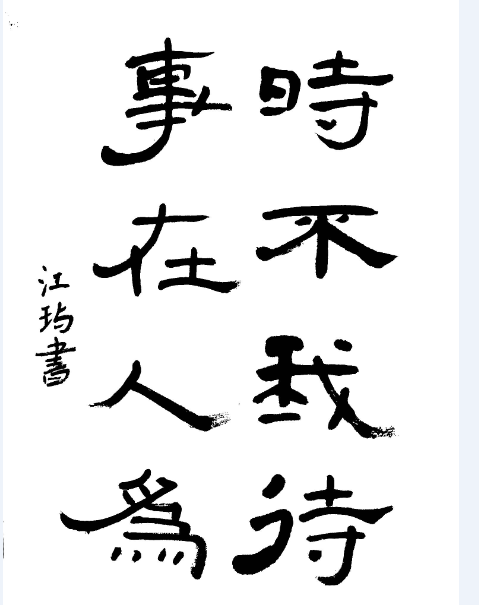 時不我待
事在人為
江玙書